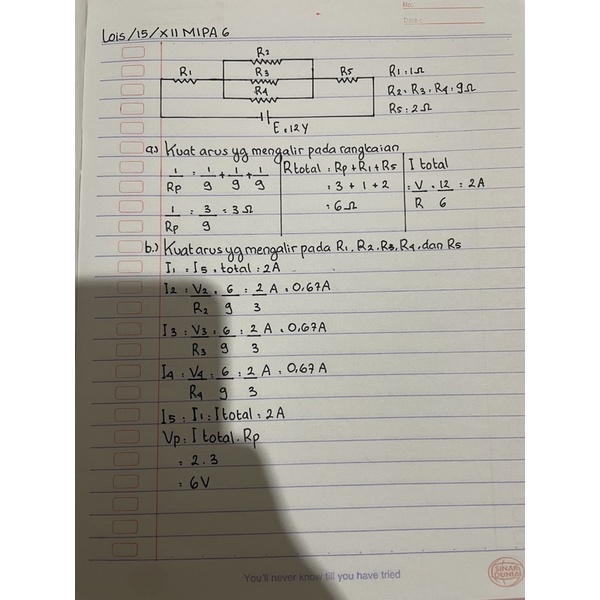 No.
Date:
Lois/15/XII MIPA 6
R2
R1 R3 R5
R4
E = 12 V
R1 = 1Ω
R2, R3, R4 = 9Ω
R5 = 2Ω
a) Kuat arus yg mengalir pada rangkaian
1/Rp = 1/9 + 1/9 + 1/9
1/Rp = 3/9 = 3Ω
R total = Rp + R1 + R5
= 3 + 1 + 2
= 6Ω
I total
= V/R = 12/6 = 2A
b.) Kuat arus yg mengalir pada R1, R2, R3, R4, dan R5
I1 = I5 = total = 2A
I2 = V2/R2 = 6/9 = 2/3 A = 0,67A
I3 = V3/R3 = 6/9 = 2/3 A = 0,67A
I4 = V4/R4 = 6/9 = 2/3 A = 0,67A
I5 = I1 = I total = 2A
Vp = I total . Rp
= 2 . 3
= 6V
You'll never know till you have tried
SINAR DUNIA